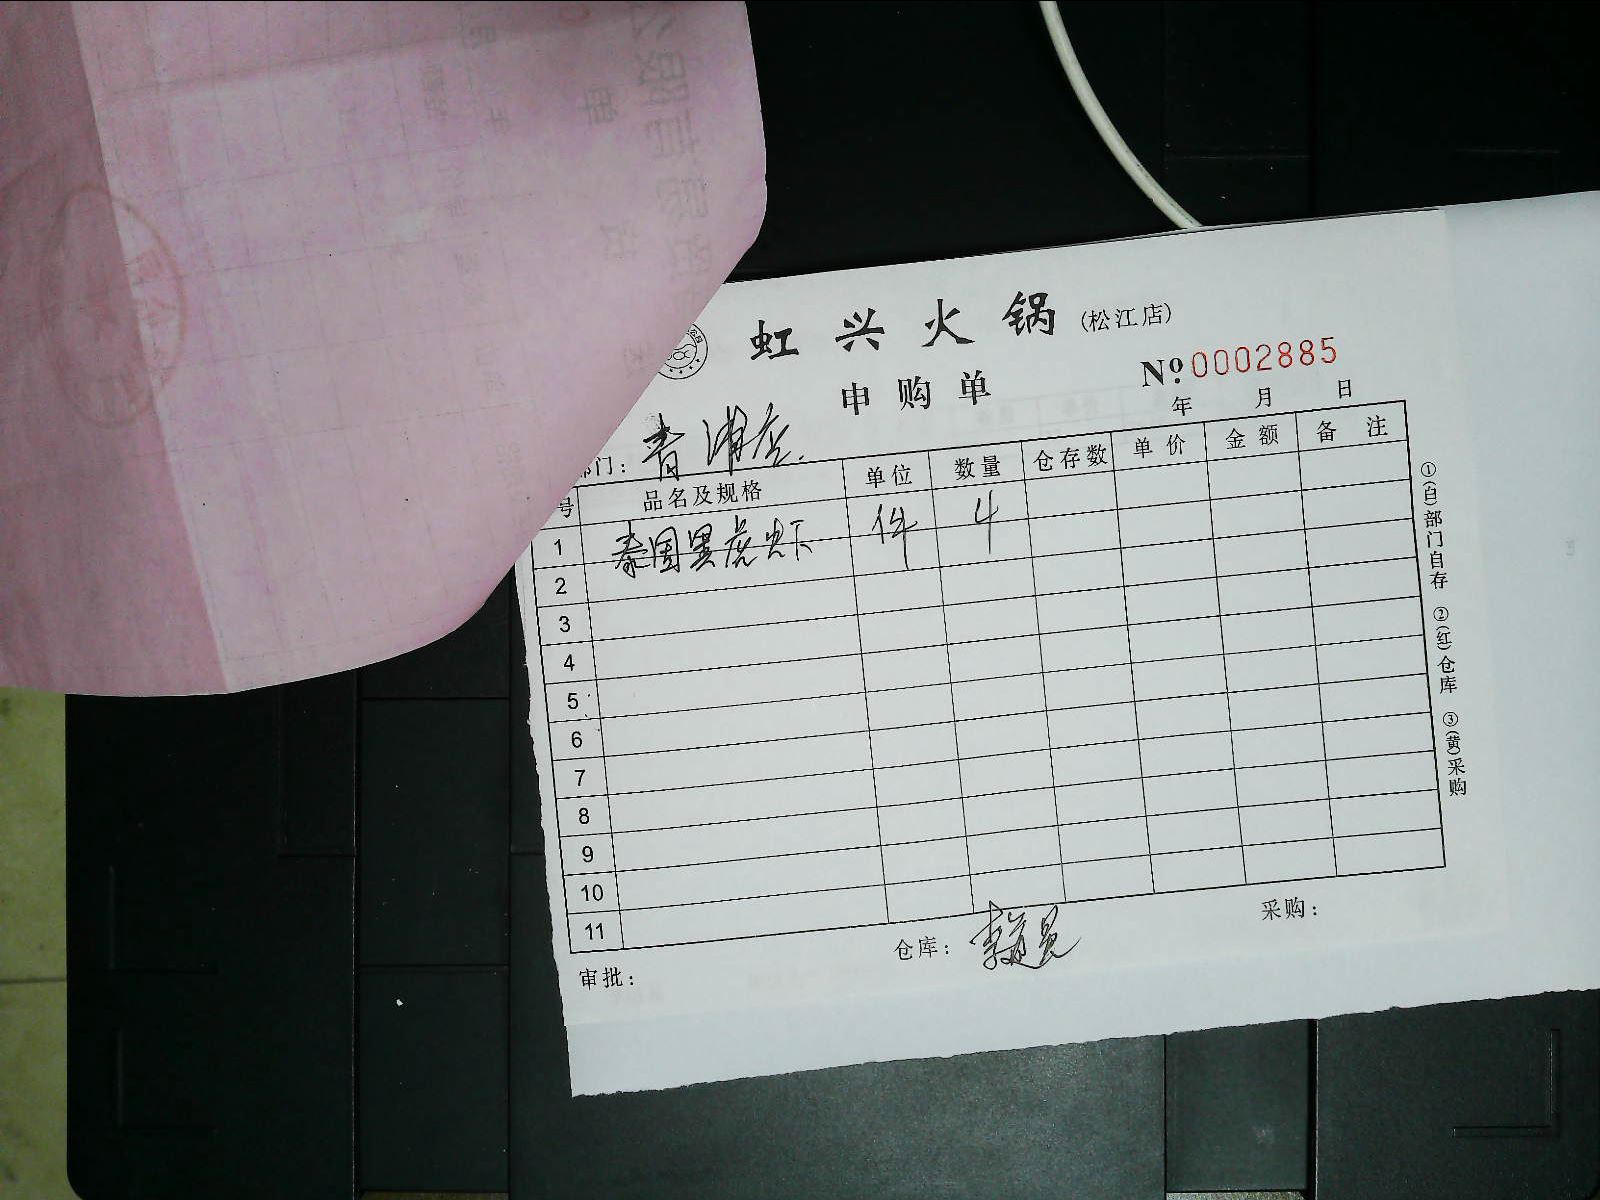 虹兴火锅(松江店)
申购单
№0002885
年 月 日
部门：青浦店.
号 品名及规格 单位 数量 仓存数 单价 金额 备注
1 泰国黑虎虾 件 4
2
3
4
5
6
7
8
9
10
11
审批： 仓库： 采购：
①(白)部门自存 ②(红)仓库 ③(黄)采购